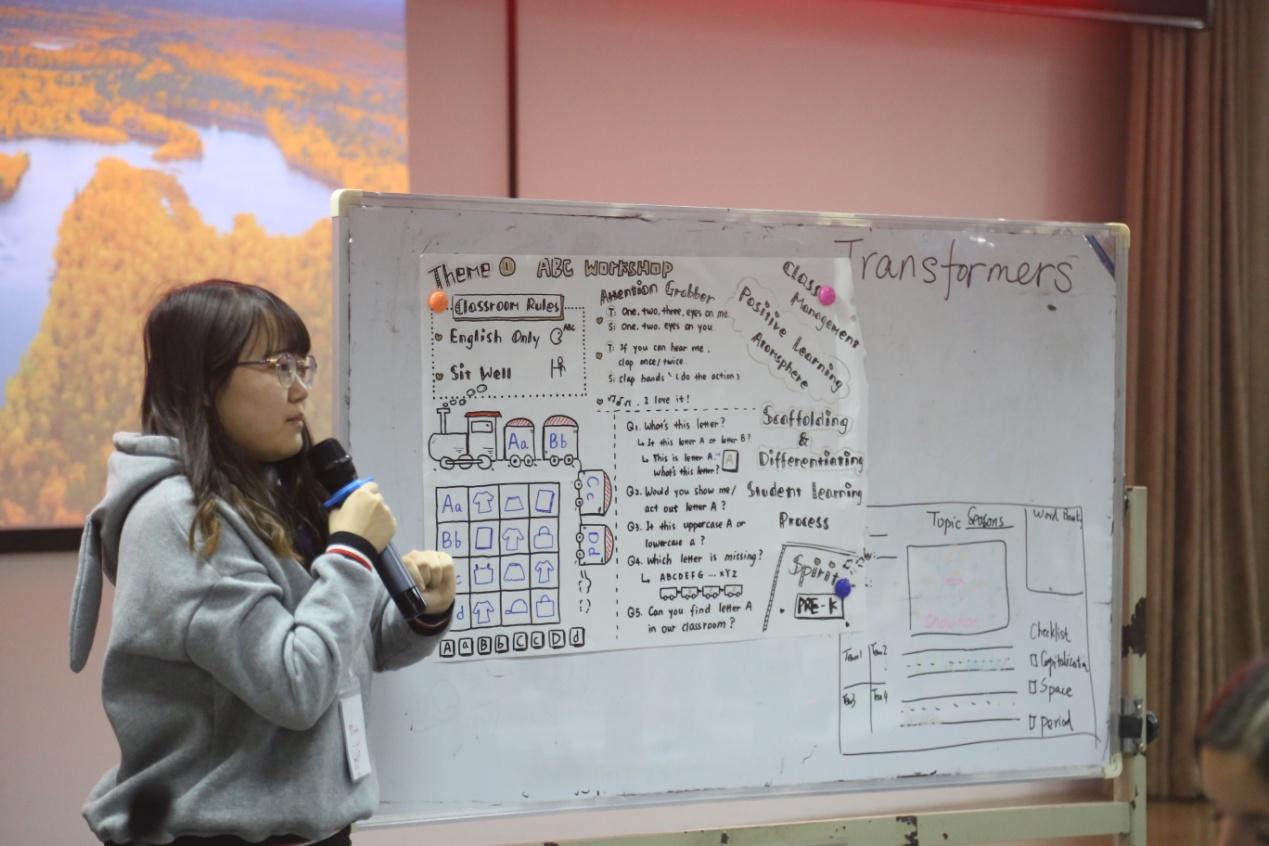 Transformers
Theme ① ABC WORKSHOP
Classroom Rules
English Only
ABC
Sit Well
Attention Grabber
T: One, two, three, eyes on me
S: One, two, eyes on you
T: If you can hear me,
clap once/twice.
S: clap hands (do the action)
I love it!
Class
Management
Positive Learning
Atomsphere
Scaffolding
&
Differentiating
Student Learning
Process
Spirit
PRE-K
Aa Bb
Cc
Dd
Aa
Bb
c
d
A a B b C c D d
Q1. What's this letter?
↳ Is this letter A or letter B?
↳ This is letter A.
What's this letter? A
Q2. Would you show me/
act out letter A?
Q3. Is this uppercase A or
lowercase a?
Q4. Which letter is missing?
↳ ABCDEFG ... XYZ
Q5. Can you find letter A
in our classroom?
Topic Seasons
Word Bank
Checklist
Space
period